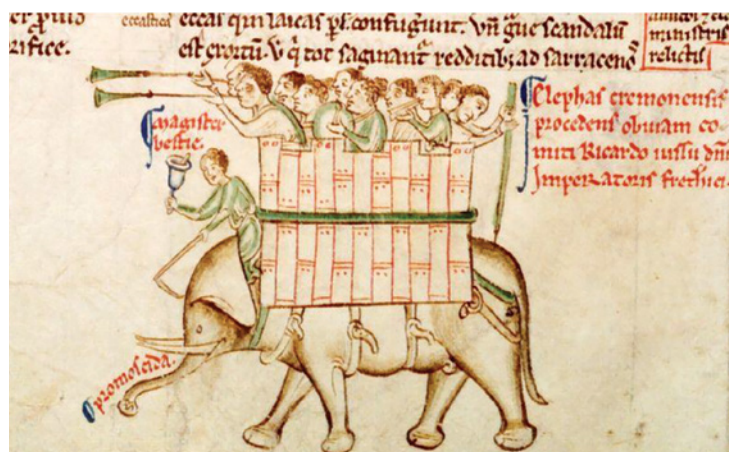 er pii9
rifice.
ecc̄astico
eccās qui laicas ꝑł. confugiunt. Vñ
est exortū.
tot saginant᷒ redditibȝ ad sarraceno
ministris
relictis
magister
bestie.
Elephas cremonensis
procedens obuiam co
miti Ricardo iussu dñi
Imperatoris fretherici.
promoscida.